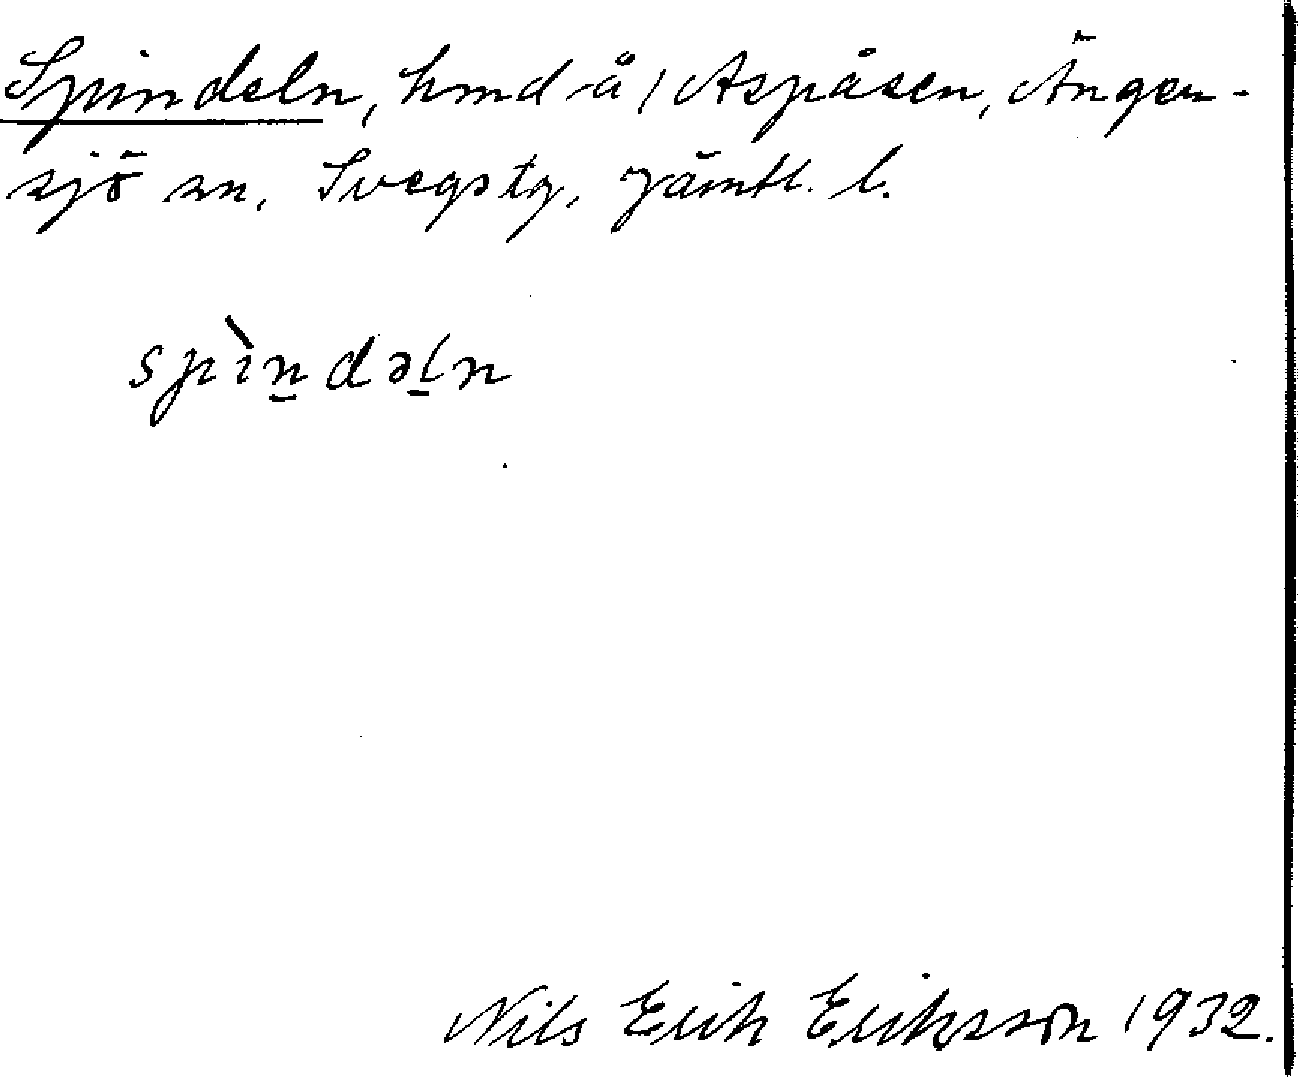 Spindeln, hmd å / Aspåsen, Ängen-
sjö sn, Svegs tg, Jämtl. l.
spìn̲dəl̲n
Nils Erik Eriksson 1932.